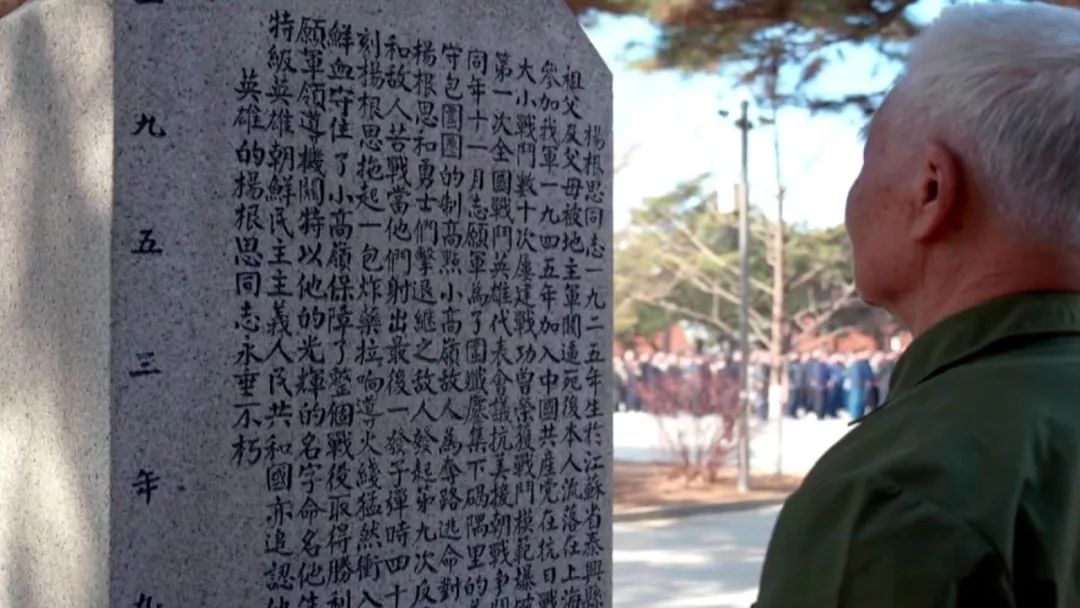 楊根思同志一九二五年生於江蘇省泰興縣
祖父及父母被地主軍閥逼死後本人流落在上海
參加我軍一九四五年加入中國共産党在抗日戰
大小戰鬥數十次屢建戰功曾榮獲戰鬥模範爆破
第一次全國戰鬥英雄代表會議抗美援朝戰爭開
同年十一月志願軍為了圍殲麇集下碣隅里的美
守包圍圈的制高點小高嶺敵人為奪路逃命對
楊根思和勇士們擊退繼之敵人發起第九次反
和敵人苦戰當他們射出最後一發子彈時四十
刻楊根思拖起一包炸藥拉响導火綫猛然衝入
鮮血守住了小高嶺保障了整個戰役取得勝利
願軍領導機關特以他的光輝的名字命名他生
特級英雄朝鮮民主主義人民共和國亦追認他
英雄的楊根思同志永垂不朽
一九五三年九